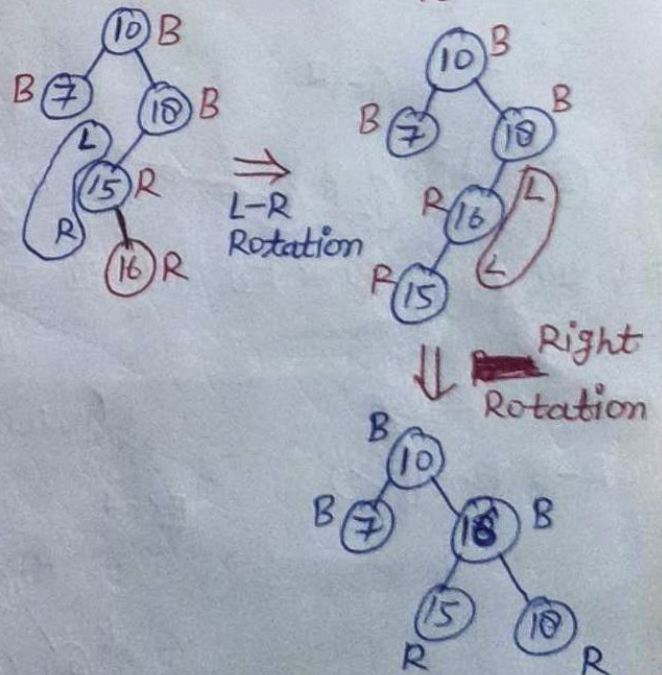 10 B
B 7
18 B
L
15 R
R
16 R
⇒
L-R
Rotation
10 B
B 7
B
18
R 16
L
L
R 15
⇓
Right
Rotation
B
10
B 7
16 B
15
18
R
R